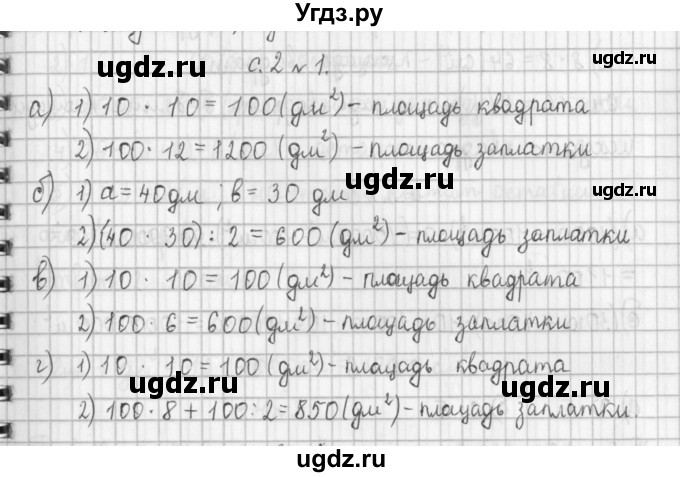 Угдз.ру
с. 2 № 1.
ugdz.ru ugdz.ru
а) 1) 10 · 10 = 100 (дм²) – площадь квадрата
2) 100 · 12 = 1200 (дм²) – площадь заплатки
ugdz.ru ugdz.ru
б) 1) a = 40 дм ; в = 30 дм
2) (40 · 30) : 2 = 600 (дм²) – площадь заплатки
ugdz.ru ugdz.ru
в) 1) 10 · 10 = 100 (дм²) – площадь квадрата
2) 100 · 6 = 600 (дм²) – площадь заплатки
г) 1) 10 · 10 = 100 (дм²) – площадь квадрата
ugdz.ru ugdz.ru
2) 100 · 8 + 100 : 2 = 850 (дм²) – площадь заплатки.
ugdz.ru